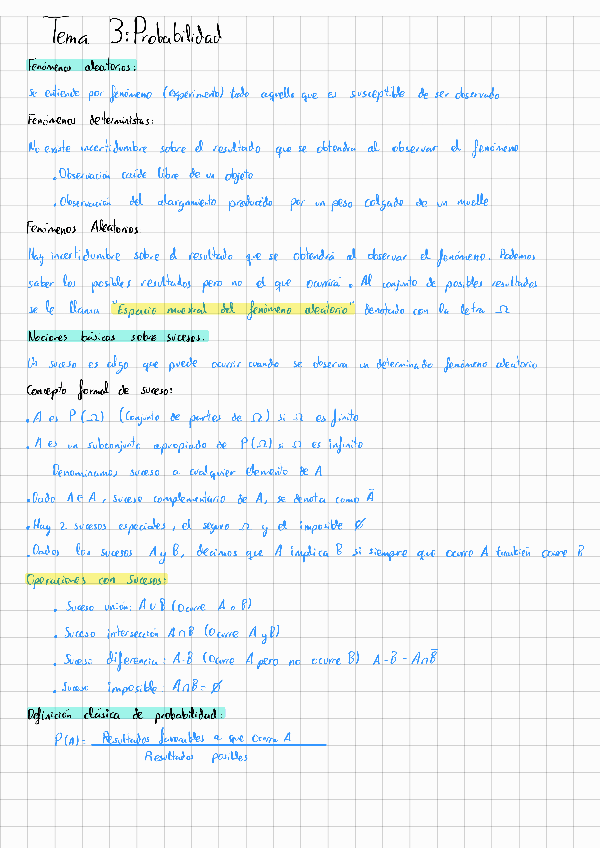 Tema 3: Probabilidad
Fenómenos aleatorios:
Se entiende por fenómeno (experimento) todo aquello que es susceptible de ser observado
Fenómenos deterministas:
No existe incertidumbre sobre el resultado que se obtendra al observar el fenómeno
. Observación caída libre de un objeto
. Observación del alargamiento producido por un peso colgado de un muelle
Fenómenos Aleatorios
Hay incertidumbre sobre el resultado que se obtendrá al observar el fenómeno. Podemos
saber los posibles resultados pero no el que ocurrirá. Al conjunto de posibles resultados
se le llama "Espacio muestral del fenómeno aleatorio" denotado con la letra Ω
Nociones básicas sobre sucesos.
Un suceso es algo que puede ocurrir cuando se observa un determinado fenómeno aleatorio
Concepto formal de suceso:
. A es P(Ω) (Conjunto de partes de Ω) si Ω es finito
. A es un subconjunto apropiado de P(Ω) si Ω es infinito
Denominamos suceso a cualquier elemento de A
. Dado A ∈ A, suceso complementario de A, se denota como Ā
. Hay 2 sucesos especiales, el seguro Ω y el imposible ∅
. Dados los sucesos A y B, decimos que A implica B si siempre que ocurre A también ocurre B
Operaciones con Sucesos:
. Suceso unión: A∪B (Ocurre A o B)
. Suceso intersección A∩B (Ocurre A y B)
. Suceso diferencia: A-B (Ocurre A pero no ocurre B) A-B = A∩B̄
. Suceso imposible A∩B = ∅
Definición clásica de probabilidad:
P(A) = Resultados favorables a que ocurra A
Resultados posibles